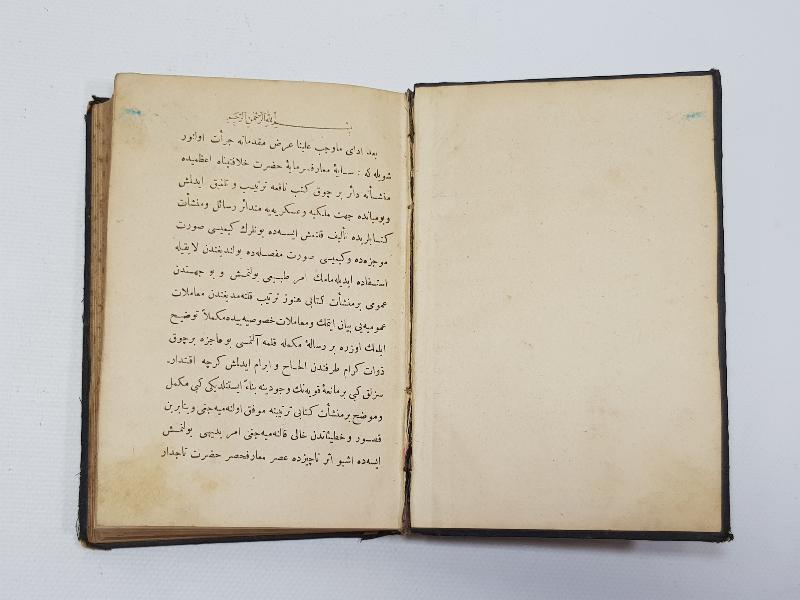 بسم الله الرحمن الرحيم
بعد ادای ماوجب علینا عرض مقدمانه جرأت اولنور
شویله که : سایهٔ معارفپیرمایهٔ حضرت خلافتپناه اعظمیده
منشأته دائر بر چوق کتب نافعه ترتیب و تلفیق ایدلش
وبومیانده جهت ملکیه وعسکریه‌یه متدائر رسائل ومنشأت
کتابلریده تألیف قلنمش ایسه‌ده بونلرك کیمیسی صورت
موجزه‌ده وکیمیسی صورت مفصله‌ده بولندیغندن لایقیله
استفاده ایدیله‌مامك امر طبیعی بولنمش و بو جهتدن
عمومی بر منشأت کتابی هنوز ترتیب قلنه‌مدیغندن معاملات
عمومیه‌یی بیان ایتمك ومعاملات خصوصیه‌ییده مکملاً توضیح
ایلمك اوزره بر رسالهٔ مکمله قلمه آلنمسی بو عاجزه برچوق
ذوات کرام طرفندن الحاح و ابرام ایدلش کرچه اقتدار_
سزلق کبی بر مانعهٔ قویه‌نك وجودینه بناءً ایستنلدیکی کبی مکمل
وموضح بر منشأت کتابی ترتیبنه موفق اوله‌میه‌جغی وبنابرین
قصور و خطیئاتدن خالی قاله‌میه‌جغی امر بدیهی بولنمش
ایسه‌ده اشبو اثر ناچیزده عصر معارفحصر حضرت تاجدار